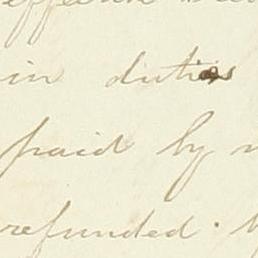 in duties
paid by
refunded.